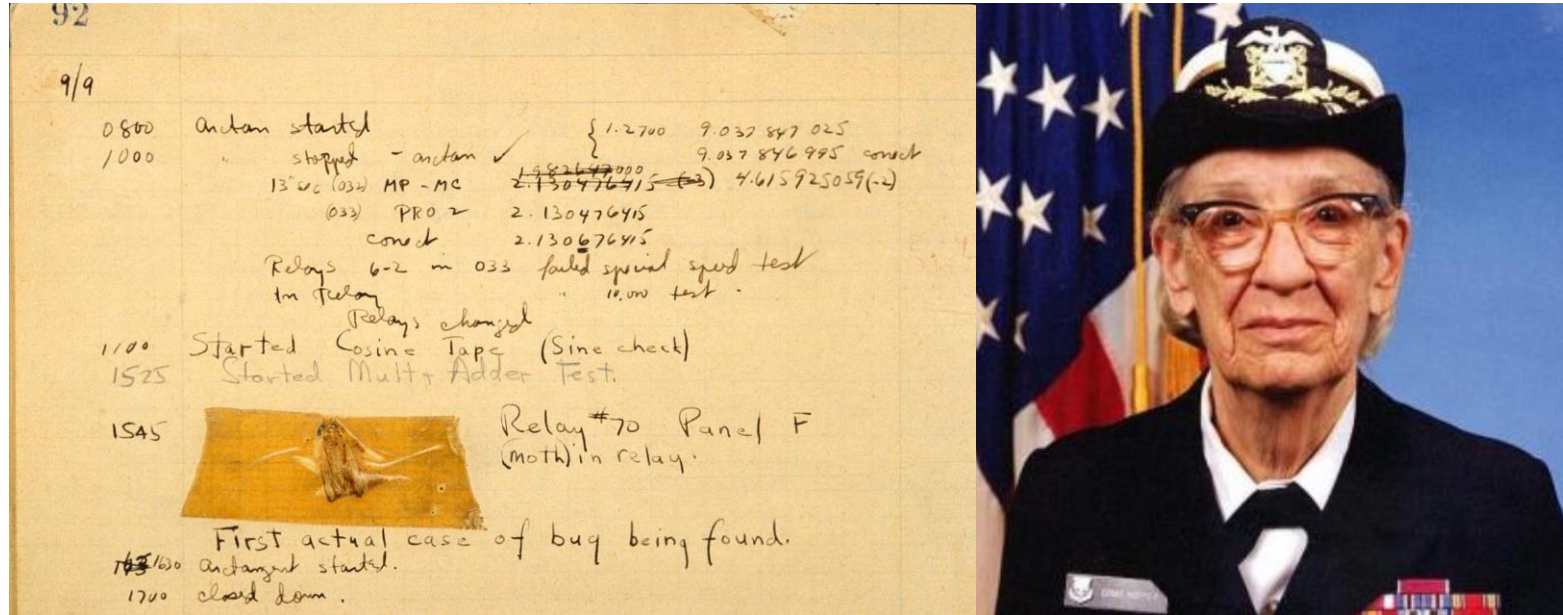 92
9/9
0800 arctan started { 1.2700 9.037 847 025
1000 " stopped - arctan ✓ 9.037 846 995 correct
13"uc (032) MP - MC 1.982647000 2.130476415 (-3) 4.615925059(-2)
(033) PRO 2 2.130476415
correct 2.130676415
Relays 6-2 in 033 failed special speed test
In Relay " 10,000 test .
Relays changed
1100 Started Cosine Tape (Sine check)
1525 Started Mult + Adder Test.
1545 Relay #70 Panel F
(moth) in relay.
First actual case of bug being found.
1630 arctangent started.
1700 closed down .
GRACE HOPPER